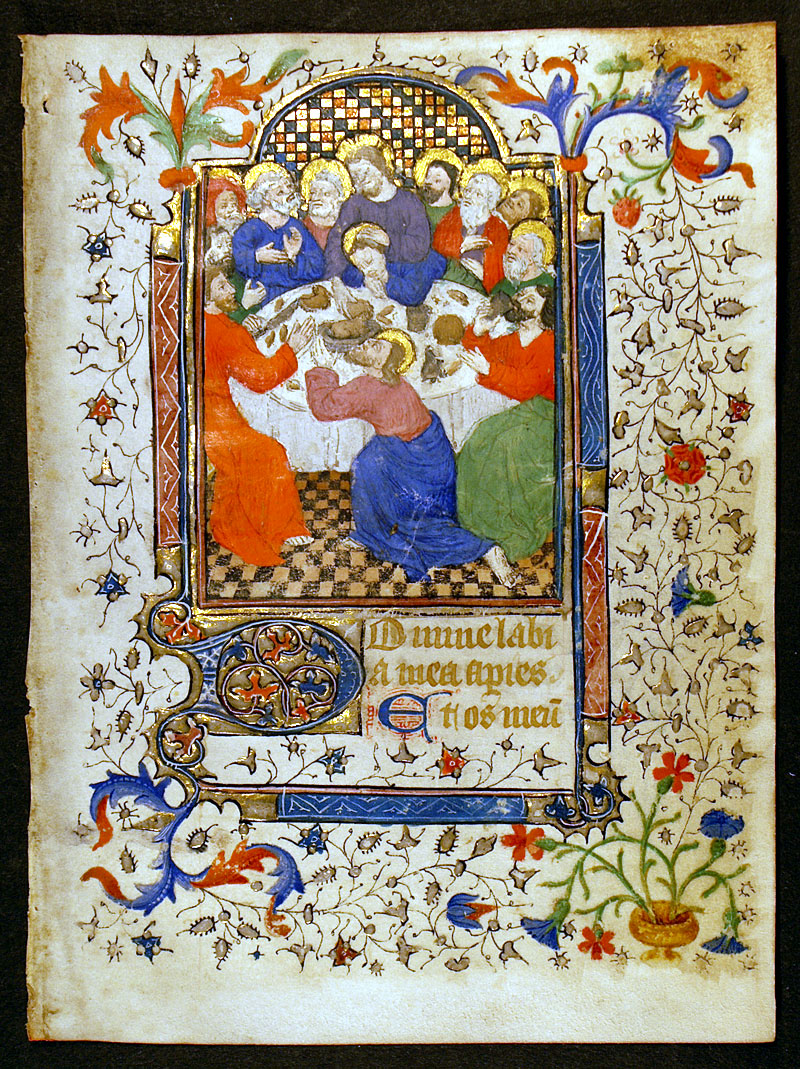 Domine labi
a mea apies
Et os meū